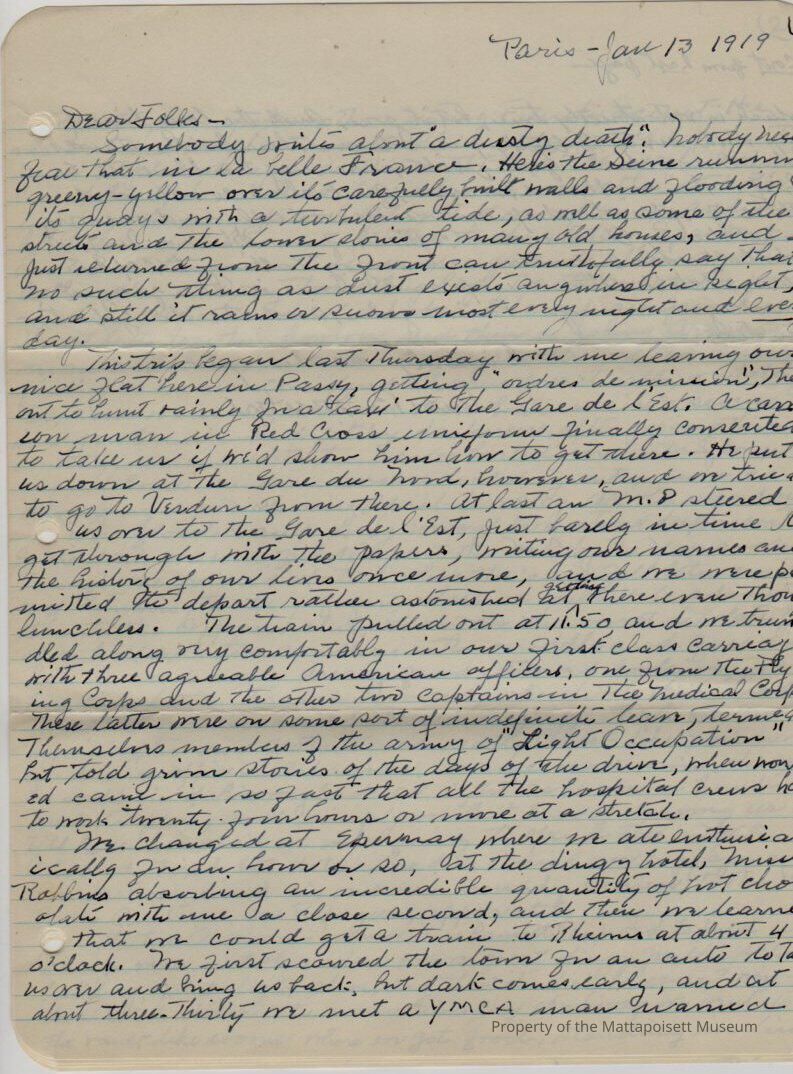 Paris - Jan 13 1919
Dear Folks -
Somebody writes about "a dusty death". Nobody nee
fear that in la belle France. Here's the Seine runnin
greeny-yellow over its carefully built walls and flooding
its quays with a turbulent tide, as well as some of the
streets and the lower stories of many old houses, and
just returned from the front can truthfully say that
no such thing as dust exists anywhere in sight,
and still it rains or snows most every night and eve
day.
This trip began last Thursday with me leaving our
nice flat here in Passy, getting "ordres de mission", the
out to hunt vainly for a taxi to the Gare de l'Est. A
man in Red Cross uniform finally consented
to take us if we'd show him how to get there. He put
us down at the Gare du Nord, however, and we trie
to go to Verdun from there. At last an M.P steered
us over to the Gare de l'Est, just barely in time
get through with the papers, writing our names an
the history of our lives once more, and we were pe
mitted to depart rather astonished at getting there even thou
lunchless. The train pulled out at 11.50 and we trun
dled along very comfortably in our first-class carriag
with three agreeable American officers, one from the Fly
ing Corps and the other two captains in the Medical Corp
These latter were on some sort of indefinite leave, termed
themselves members of the army of "Light Occupation"
but told grim stories of the days of the drive, when woun
ed came in so fast that all the hospital crews ha
to work twenty-four hours or more at a stretch.
We changed at Epernay where we ate enthusia
ically for an hour or so, at the dingy hotel, Miss
Robbins absorbing an incredible quantity of hot cho
olate with me a close second, and then we learne
that we could get a train to Rheims at about 4
o'clock. We first scoured the town for an auto to ta
us over and bring us back, but dark comes early, and at
about three-thirty we met a YMCA man named
Property of the Mattapoisett Museum